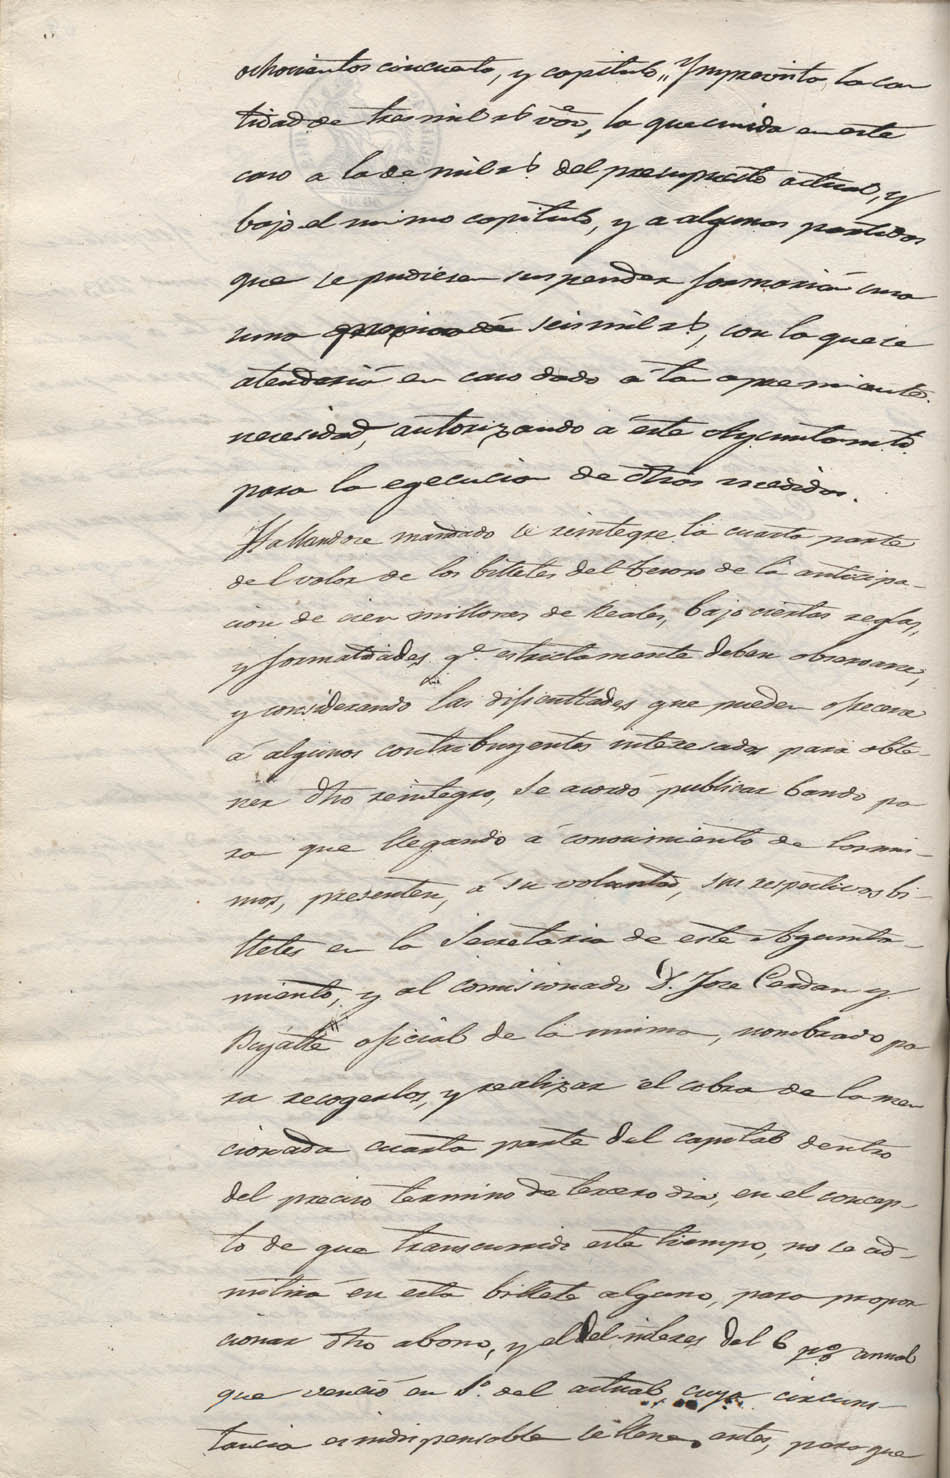 ochocientos cincuenta, y capitulo „ Ymprevistos, la can
tidad de tres mil rs vón, la que unida en este
caso a la de mil rs. del presupuesto actual, y
bajo el mismo capitulo, y a algunas partidas
que se pudieran suspender formaria una
suma de seis mil rs, con la que se
atenderia en caso dado á tan apremiante
necesidad, autorizando á éste Ayuntamto.
para la egecucion de dhas medidas.
Hallandose mandado se reintegre la cuarta parte
del valor de los billetes del tesoro de la anticipa-
cion de cien millones de Reales, bajo ciertas reglas,
y formalidades, qe. estrictamente deben observarse,
y considerando las dificultades que pueden ofrecerse
á algunos contribuyentes interesados para obte-
ner dho reintegro, se acordó publicar bando pa
ra que llegando á conocimiento de los mis-
mos, presenten, á su voluntad, sus respectivos bi-
lletes en la Secretaria de este Ayunta-
miento, y al comisionado D. Jose Cerdan y
oficial de la misma, nombrado pa
ra recogerlos, y realizar el cobro de la men
cionada cuarta parte del capital dentro
del preciso termino de tercero dia, en el concep-
to de que transcurrido este tiempo, no se ad-
mitirá en esta billete alguno, para propor
cionar dho abono, y el del interes del 6 p% annual
que venció en 1º. del actual, cuya circuns-
tancia es indispensable se llene antes, para que